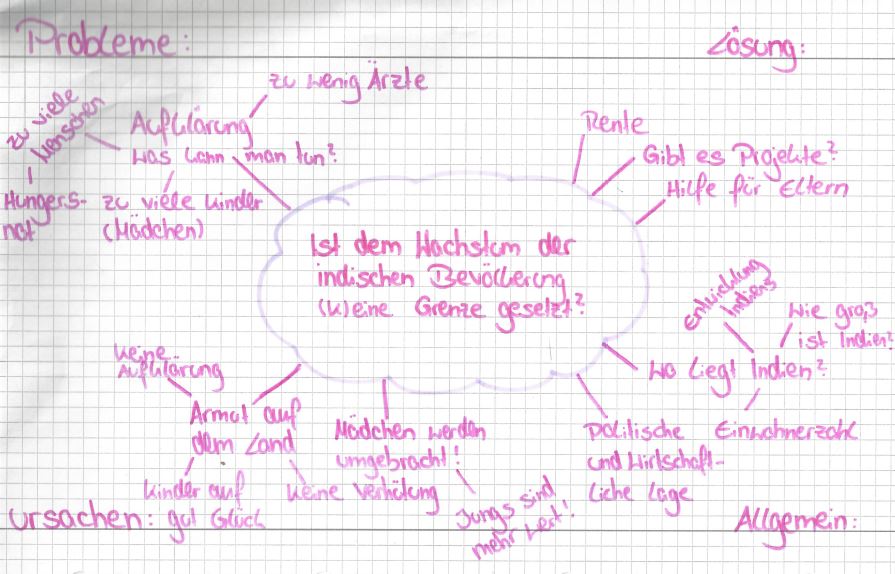 Probleme:
Lösung:
zu wenig Ärzte
zu viele
Menschen
Aufklärung
was kann man tun?
Hungers-
not
zu viele Kinder
(Mädchen)
Rente
Gibt es Projekte?
Hilfe für Eltern
Ist dem Wachstum der
indischen Bevölkerung
(k)eine Grenze gesetzt?
Entwicklung
Indiens
Wie groß
ist Indien?
Wo liegt Indien?
Einwohnerzahl
Politische
und Wirtschaft-
liche Lage
Keine
Aufklärung
Armut auf
dem Land
Kinder auf
gut Glück
Keine Verhütung
Mädchen werden
umgebracht!
Jungs sind
mehr Wert!
Ursachen:
Allgemein: